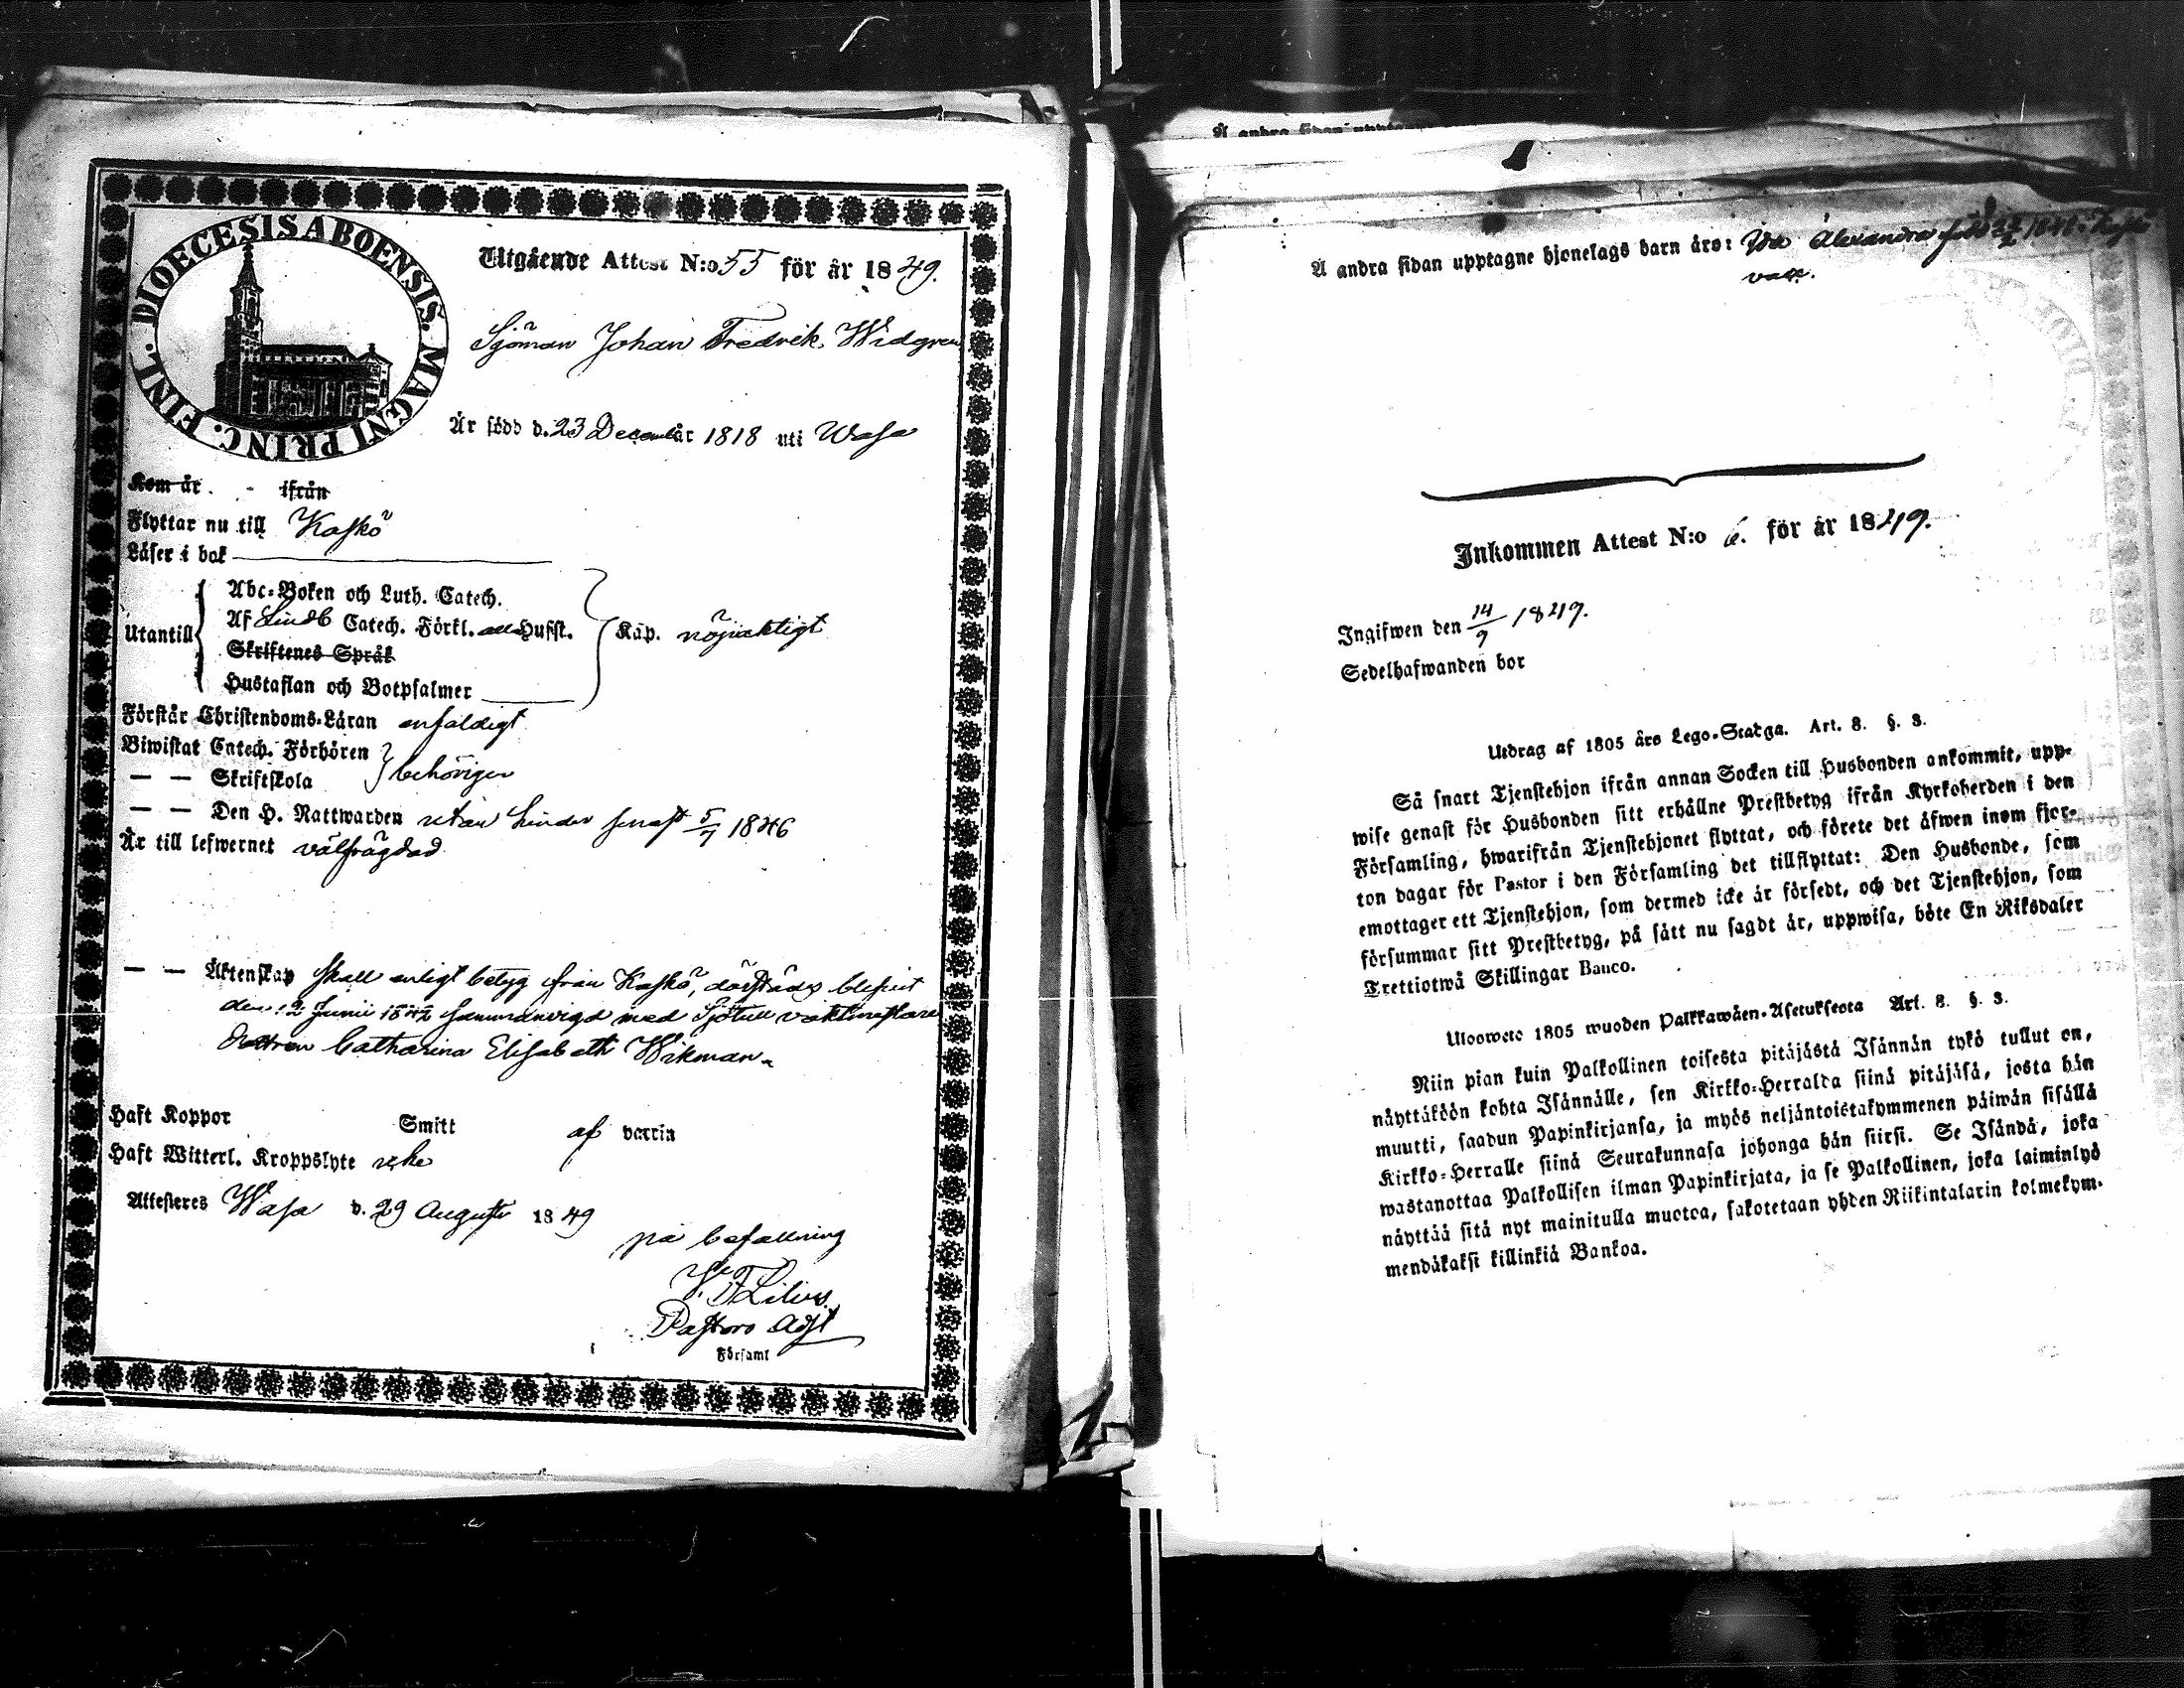 DIOECESIS ABOENSIS. MAGNI PRINC. FINL.
Utgående Attest N:o 55 för år 1849.
Sjöman Johan Fredrik Widgren
Är född d. 23 December 1818 uti Wasa
Kom år . - ifrån
Flyttar nu till Kaskö
Läser i bok
Utantill
Abc-Boken och Luth. Catech.
Af Lindb Catech. Förkl. Husst.
Skriftenes Språk
Hustaflan och Botpsalmer
Käp. nöjaktigt
Förstår Christendoms-Läran enfaldigt
Biwistat Catech. Förhören
— — Skriftskola
behörigen
— — Den H. Nattwarden utan hinder senast 5/7 1846
Är till lefwernet välfrägdad
— — Äktenskap skall enligt betyg från Kaskö, därstädes blifvit
den 12 Junii 1842 sammanvigd med Sjötull vaktmästare
dottren Catharina Elisabeth Wikman
Haft Koppor Smitt af vaccin
Haft Witterl. Kroppslyte icke
Attesteres Wasa d. 29 Augusti 1849
på befallning
Lilius
Pastors Adjt
Församl
Å andra sidan uppta
Å andra sidan upptagne hjonelags barn äro: Ida Alexandra född 1848 i Kaskö
vacc.
Inkommen Attest N:o 6. för år 1849.
Ingifwen den 14/9 1849.
Sedelhafwanden bor
Utdrag af 1805 års Lego-Stadga. Art. 8. §. 3.
Så snart Tjenstehjon ifrån annan Socken till Husbonden ankommit, upp-
wise genast för Husbonden sitt erhållne Prestbetyg ifrån Kyrkoherden i den
Församling, hwarifrån Tjenstehjonet flyttat, och förete det äfwen inom fjor-
ton dagar för Pastor i den Församling det tillflyttat: Den Husbonde, som
emottager ett Tjenstehjon, som dermed icke är försedt, och det Tjenstehjon, som
försummar sitt Prestbetyg, på sätt nu sagdt är, uppwisa, böte En Riksdaler
Trettiotwå Skillingar Banco.
Uloswete 1805 wuoden Palkkawäen-Asetuksesta Art. 8. §. 3.
Niin pian kuin Palkollinen toisesta pitäjästä Isännän tykö tullut on,
näyttäköön kohta Isännälle, sen Kirkko-Herralda siinä pitäjäsä, josta hän
muutti, saadun Papinkirjansa, ja myös neljäntoistakymmenen päiwän sisällä
Kirkko-Herralle siinä Seurakunnasa johonga hän siirsi. Se Isändä, joka
wastanottaa Palkollisen ilman Papinkirjata, ja se Palkollinen, joka laiminlyö
näyttää sitä nyt mainitulla muotoa, sakotetaan yhden Riikintalarin kolmekym-
mendäkaksi killinkiä Bankoa.